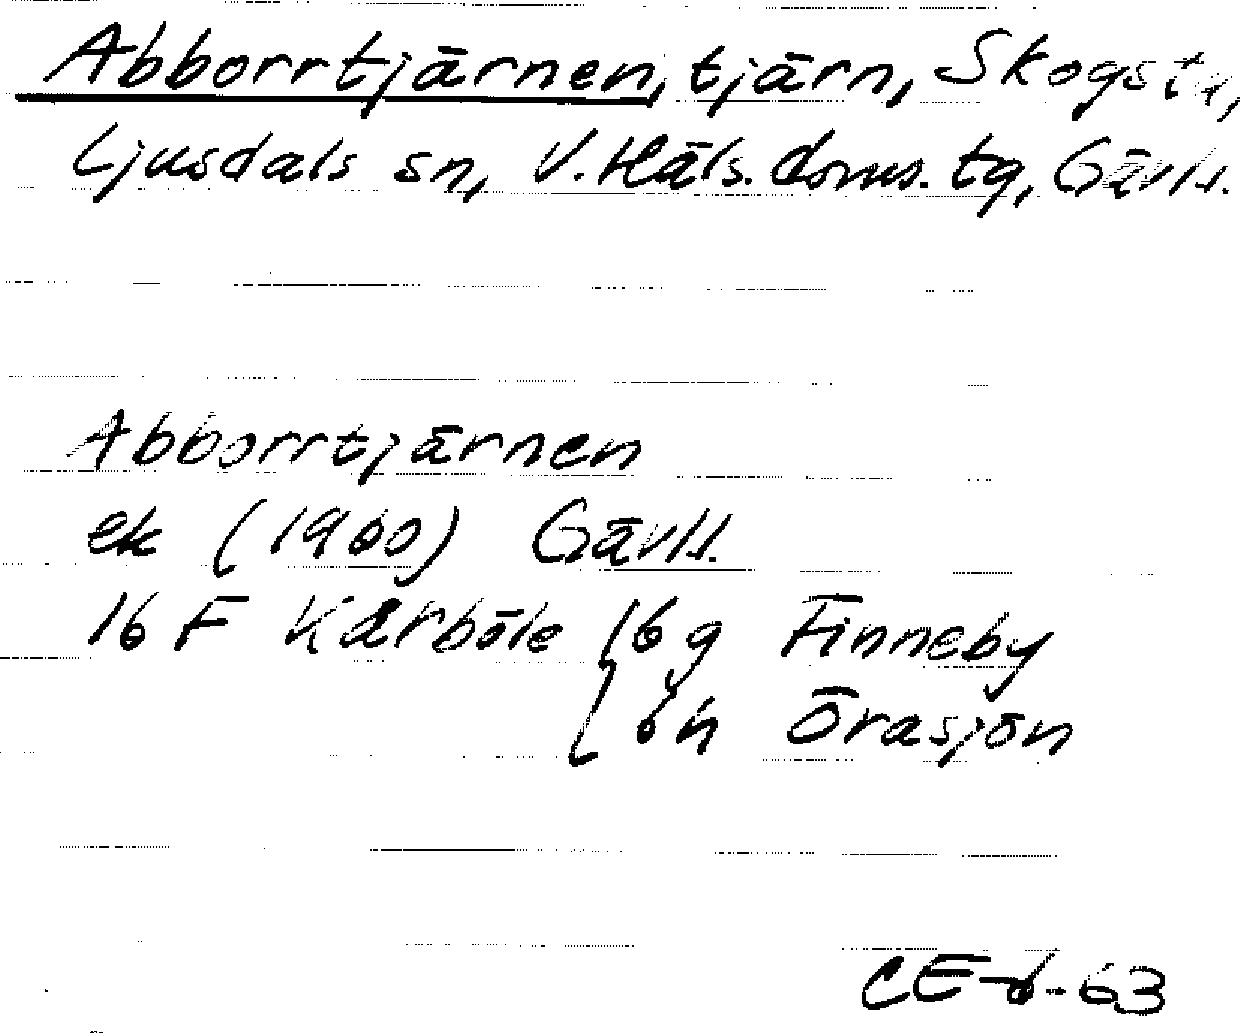 Abborrtjärnen, tjärn, Skogsta,
Ljusdals sn, V. Häls. doms. tg, Gävl.l.
Abborrtjärnen
ek (1960) Gävl.l.
16 F Kårböle 16 g Finneby
6 h Örasjön
CE-d-63